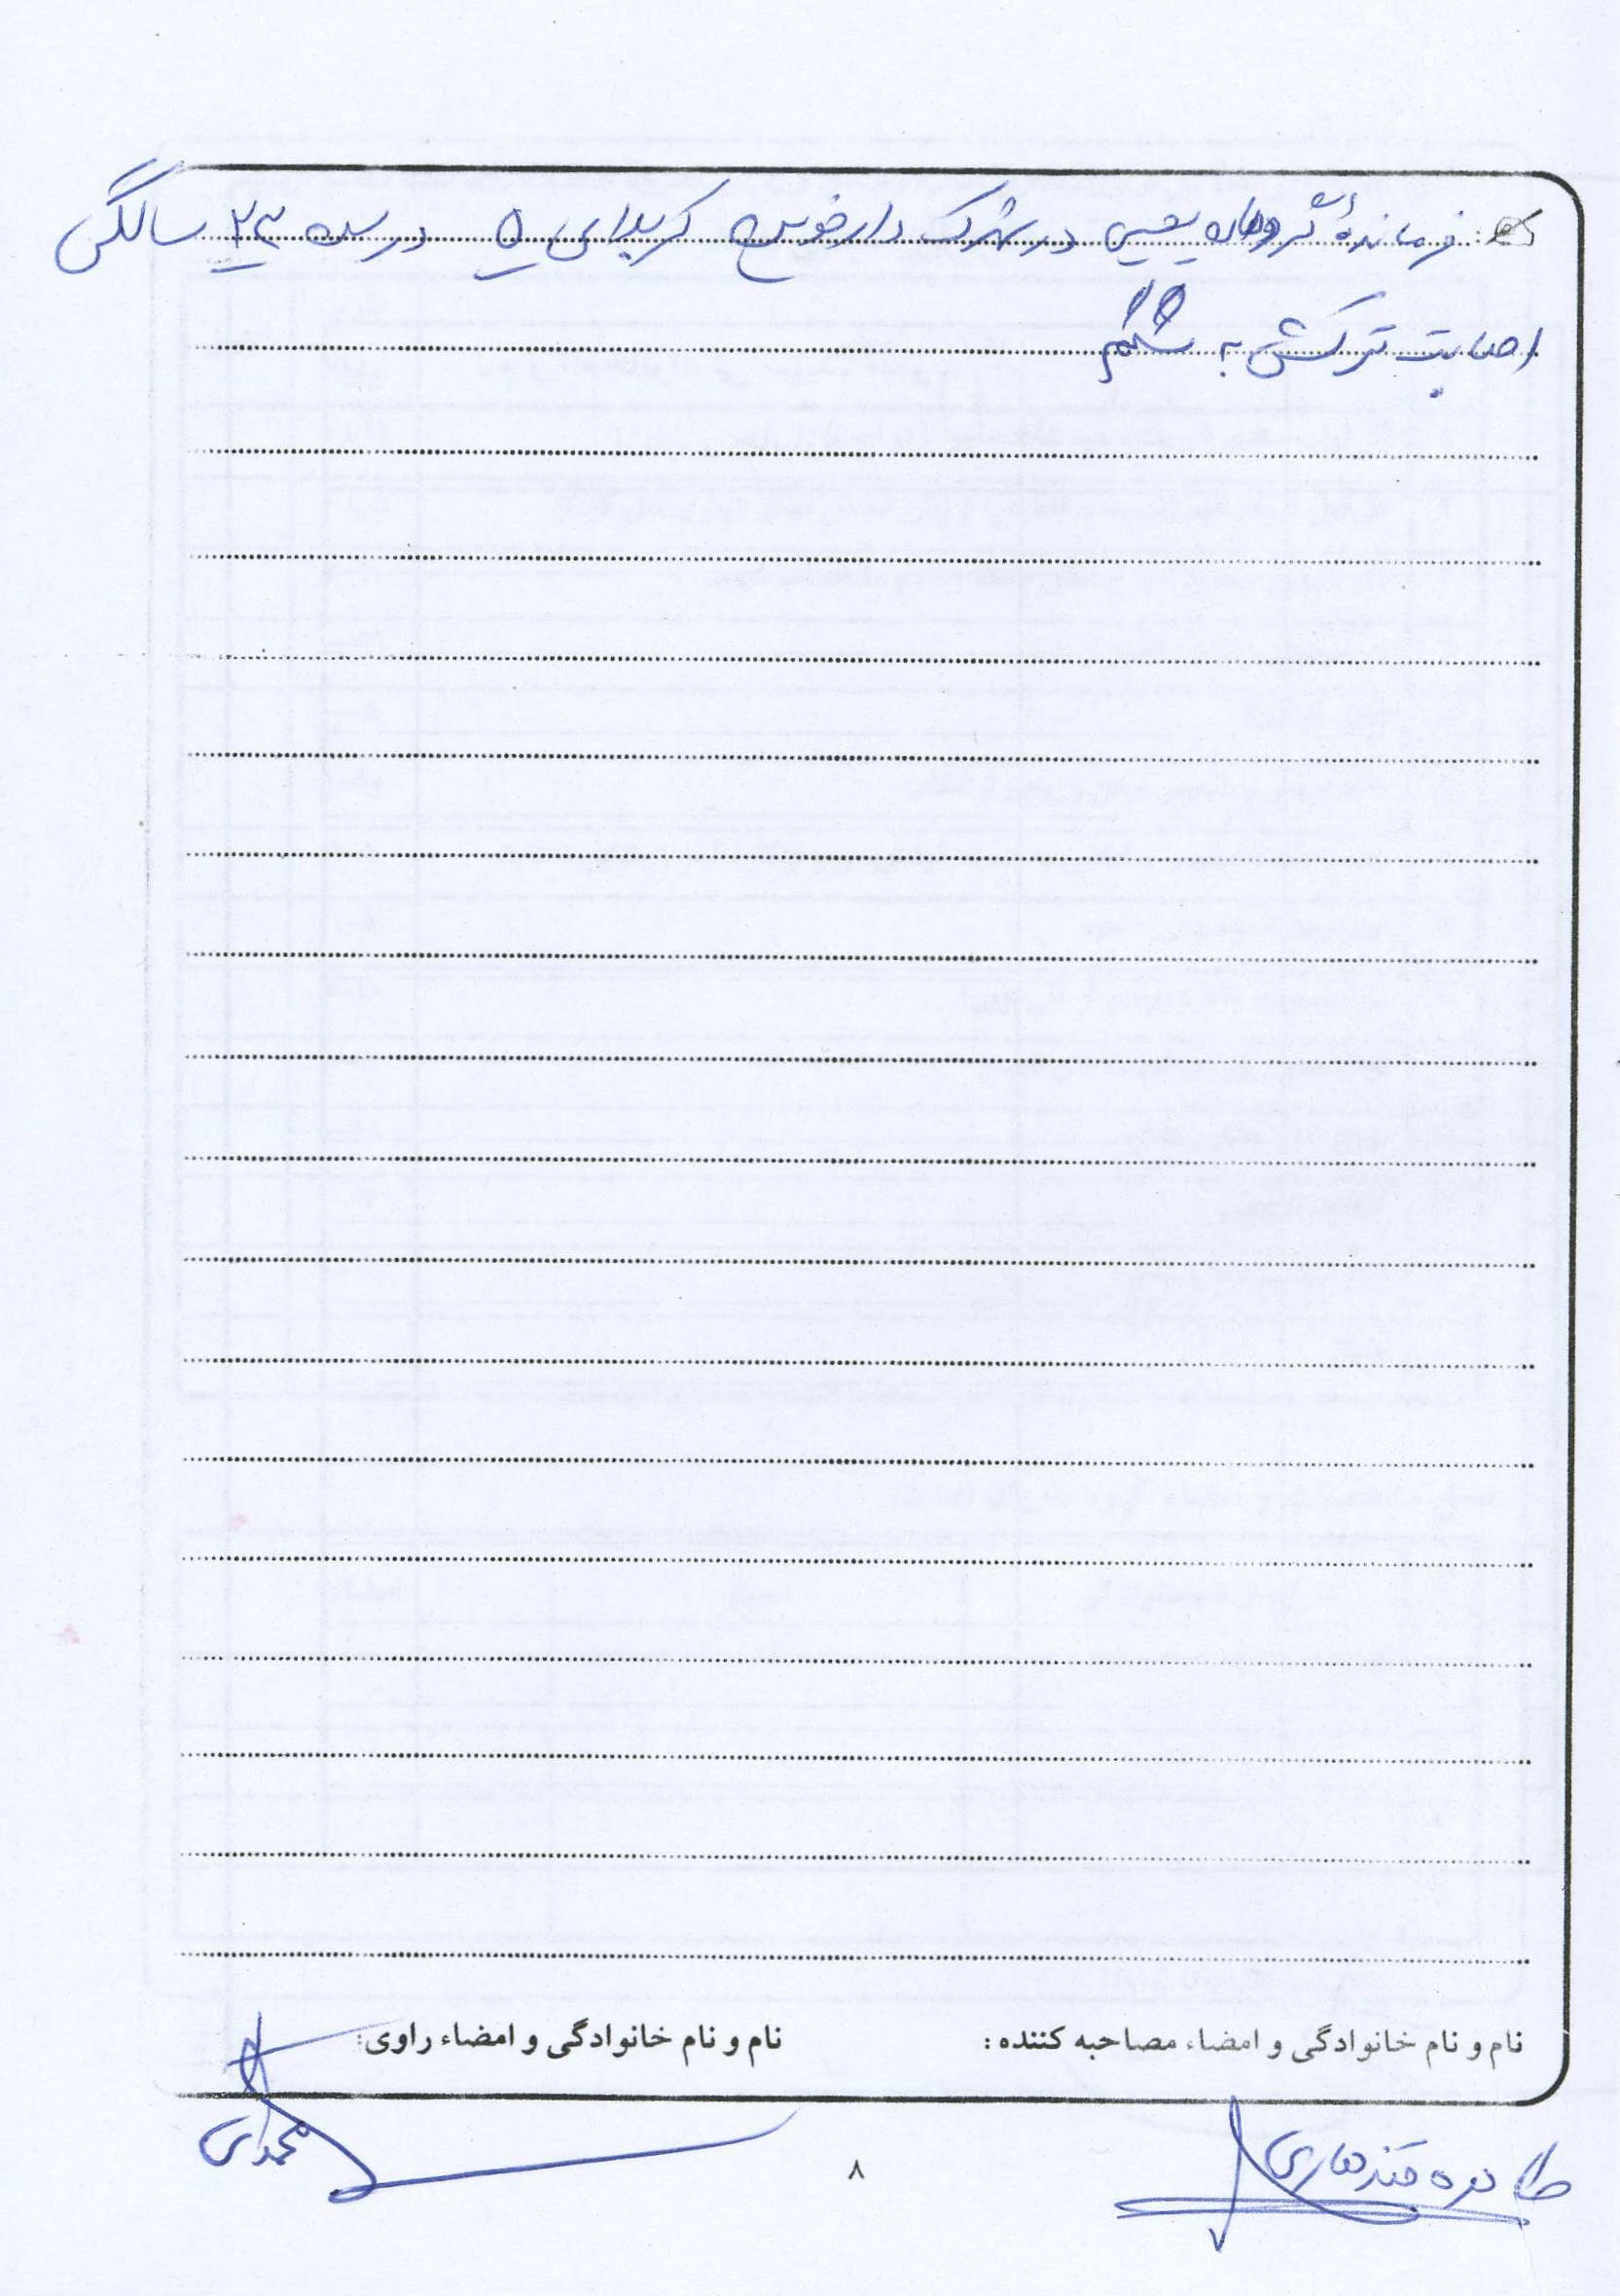 فرمانده گروهان یحیی در شهرک دارخوین کربلای ۵ در سن ۲۳ سالگی
اصابت ترکش به شکم
نام و نام خانوادگی و امضاء مصاحبه کننده: نام و نام خانوادگی و امضاء راوی:
طاهره قندهاری محمدی
۸